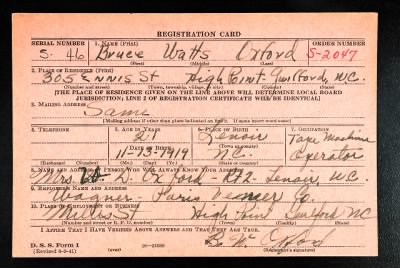 REGISTRATION CARD
SERIAL NUMBER 1. NAME (Print) ORDER NUMBER
S- 46 Bruce Watts Oxford S-2047
(First) (Middle) (Last)
2. PLACE OF RESIDENCE (Print)
305 Ennis St High Point. Guilford, N.C.
(Number and street) (Town, township, village, or city) (County) (State)
[THE PLACE OF RESIDENCE GIVEN ON THE LINE ABOVE WILL DETERMINE LOCAL BOARD
JURISDICTION; LINE 2 OF REGISTRATION CERTIFICATE WILL BE IDENTICAL]
3. MAILING ADDRESS
Same
[Mailing address if other than place indicated on line 2. If same insert word same]
4. TELEPHONE 5. AGE IN YEARS 6. PLACE OF BIRTH 7. OCCUPATION
21 Lenoir Tape Machine
DATE OF BIRTH
11-23-1919 N.C. Operator
(Exchange) (Number) (Mo.) (Day) (Yr.) (State or country)
8. NAME AND ADDRESS OF PERSON WHO WILL ALWAYS KNOW YOUR ADDRESS
Mrs. D. Oxford Rt 2- Lenoir, N.C.
9. EMPLOYER'S NAME AND ADDRESS
Wagner - Veneer Co.
10. PLACE OF EMPLOYMENT OR BUSINESS
Millis St High Point Guilford NC
(Number and street or R. F. D. number) (Town) (County) (State)
I AFFIRM THAT I HAVE VERIFIED ABOVE ANSWERS AND THAT THEY ARE TRUE.
D. S. S. Form 1
(Revised 6-9-41) (over) 16-21630